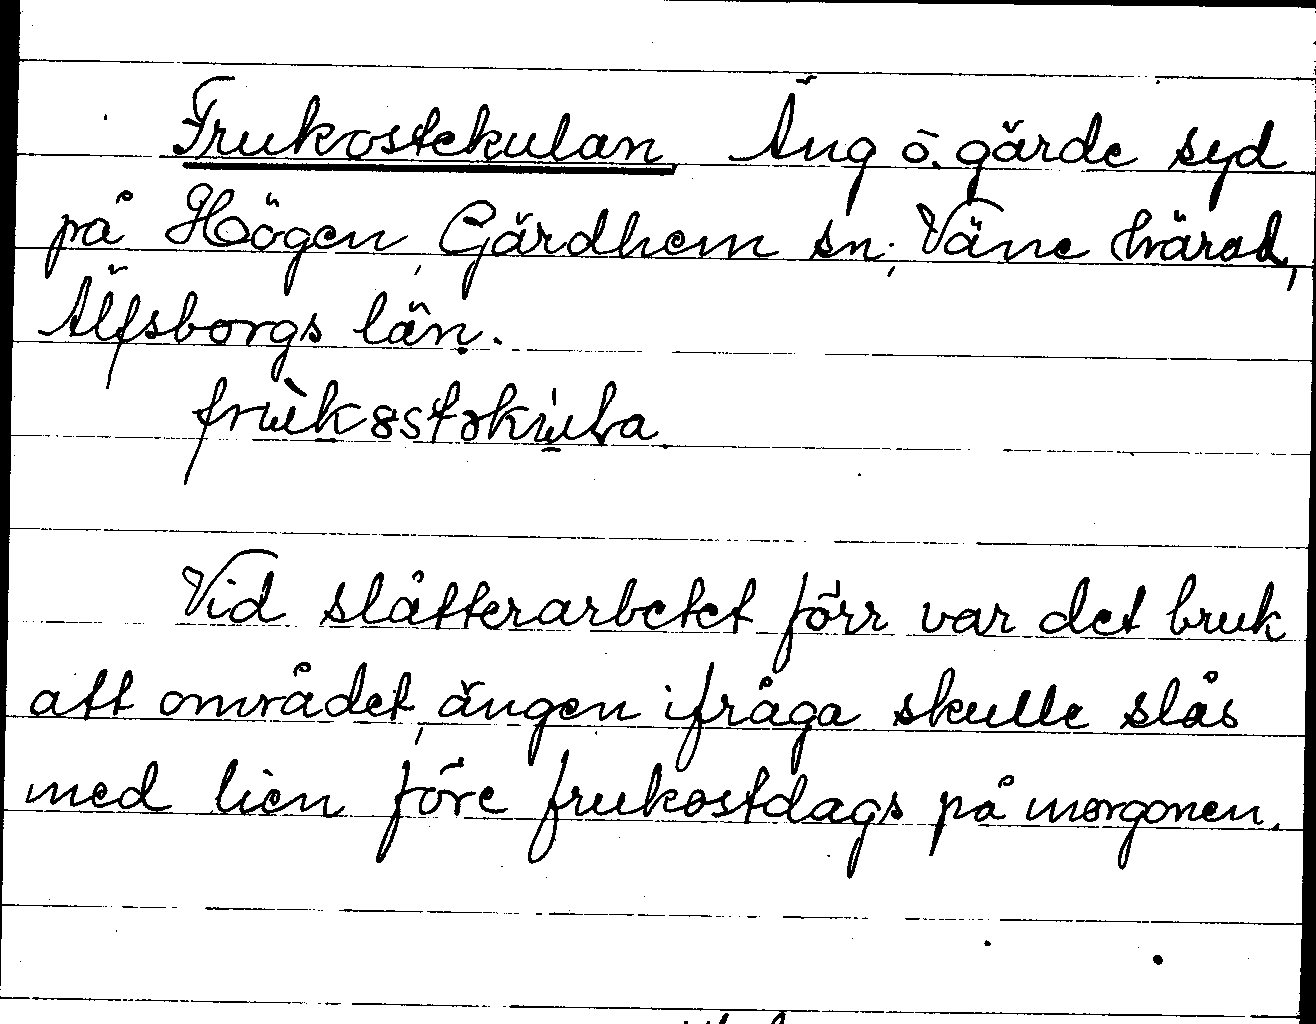 Frukostekulan Äng o. gärde syd
på Högen, Gärdhem sn; Väne härad,
Älfsborgs län.
Vid slåtterarbetet förr var det bruk
att området, ängen ifråga skulle slås
med lien före frukostdags på morgonen.